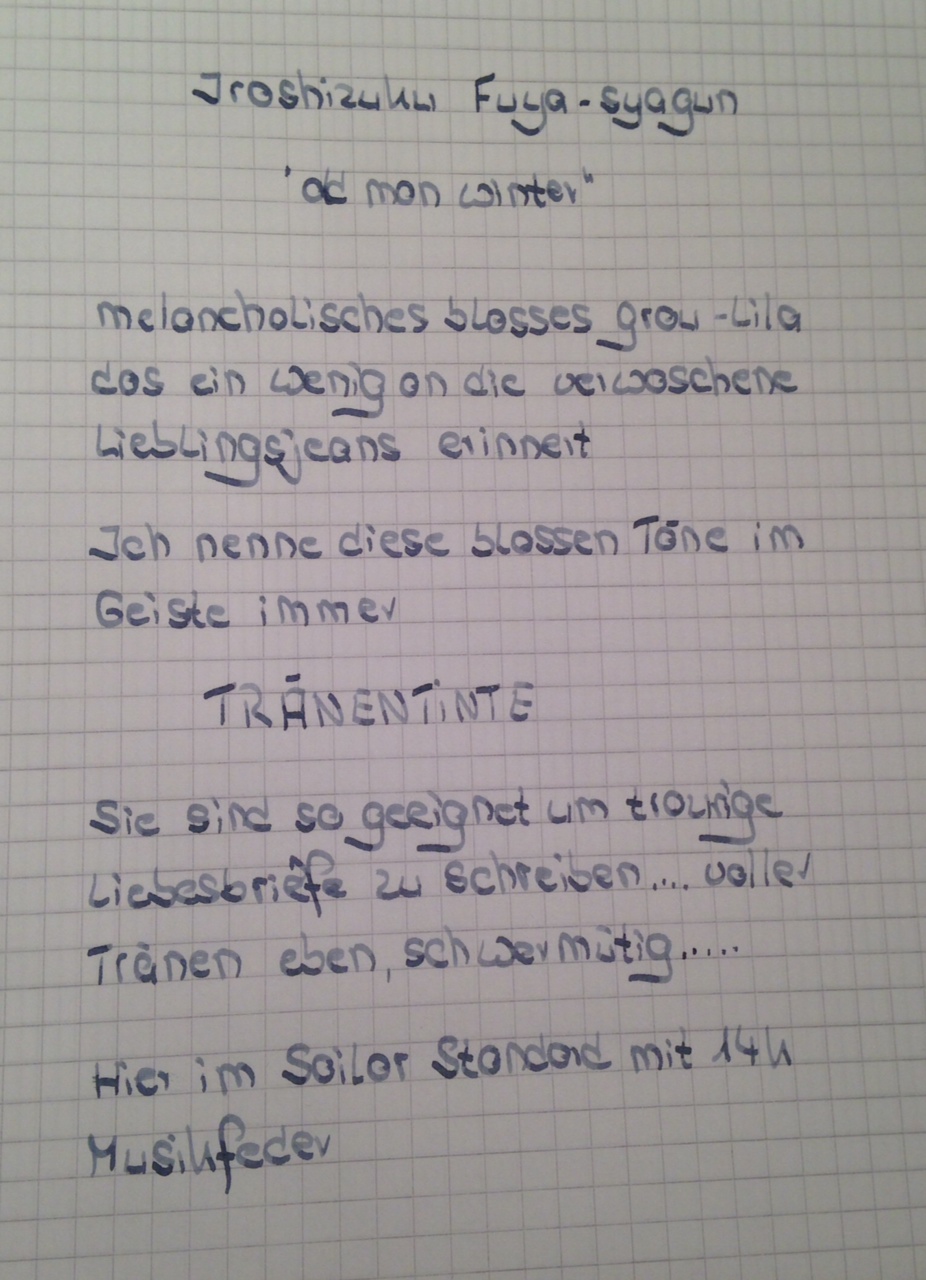 Iroshizuku Fuya-syagun
"old man winter"
melancholisches blasses grau-Lila
das ein wenig an die verwaschene
Lieblingsjeans erinnert
Ich nenne diese blassen Töne im
Geiste immer
TRÄNENTiNTE
Sie sind so geeignet um traurige
Liebesbriefe zu schreiben.... voller
Tränen eben, schwermütig.....
Hier im Sailor Standard mit 14k
Musikfeder